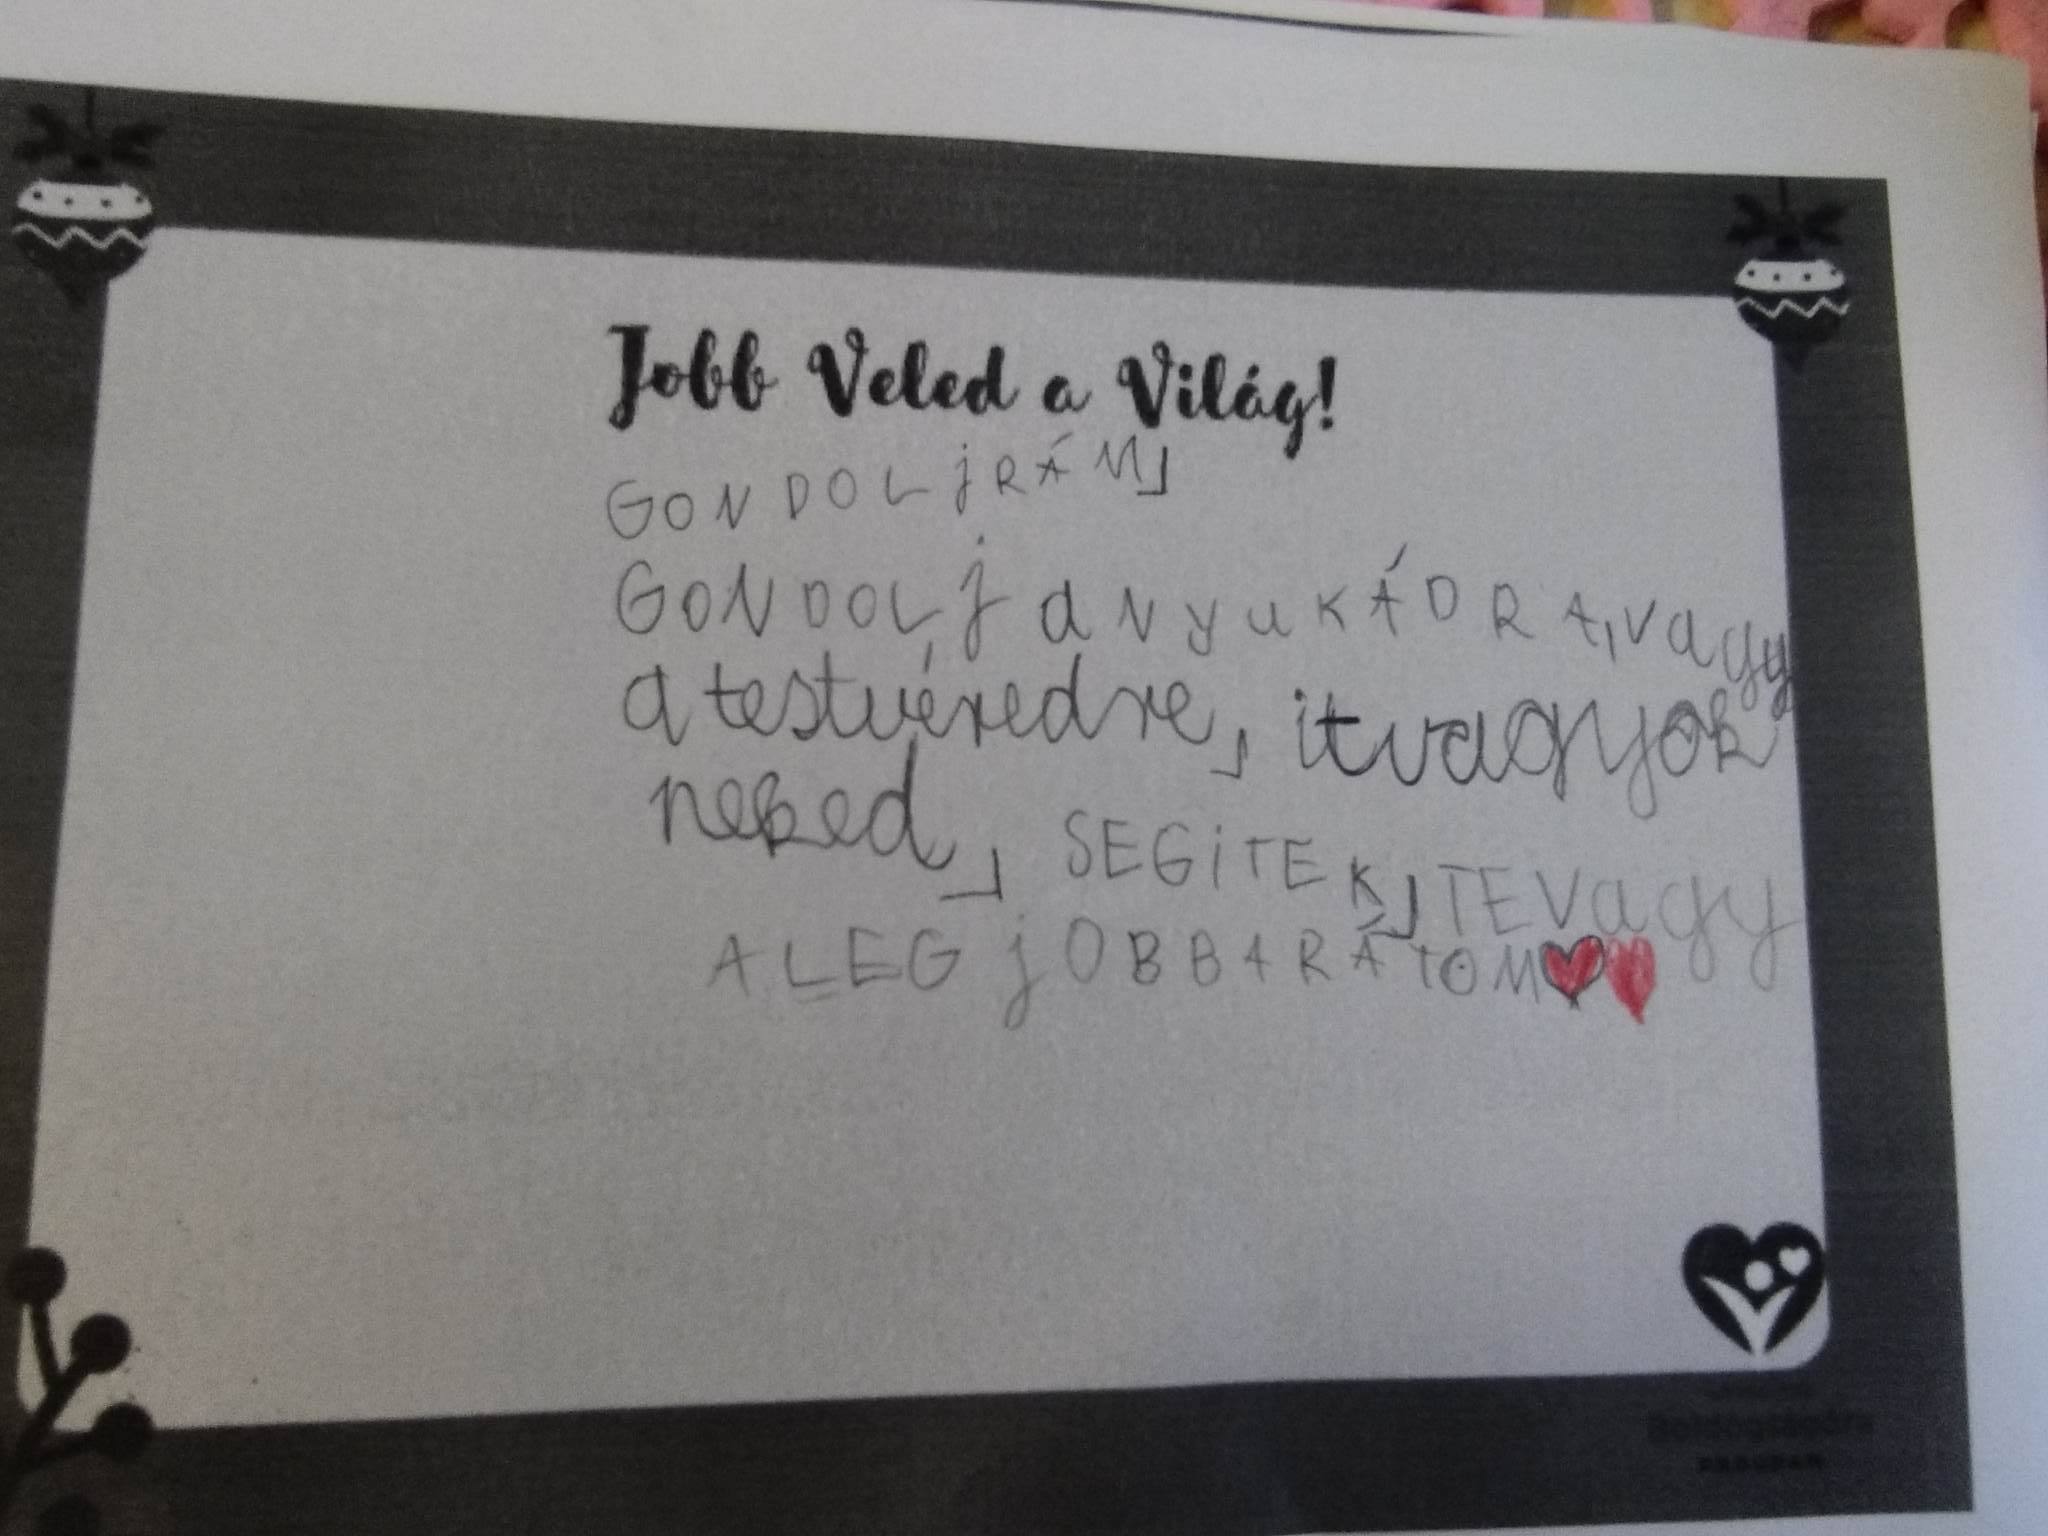 Jobb Veled a Világ!
GONDOLjRÁM,
GONDOLj aNyuKÁDRA, vagy
a testvéredre, itvagyok
neked, SEGiTEK, TEVagy
ALEGjOBBBARÁTOM
Boldogságóra
PROGRAM